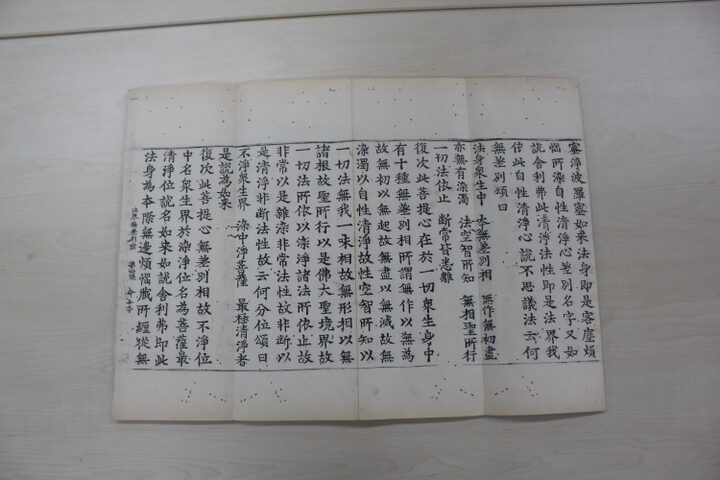 密淨波羅蜜如來法身即是客塵煩
惱所染自性清淨心差別名字又如
說舍利弗此清淨法性即是法界我
依此自性清淨心說不思議法云何
無差別頌曰
法身衆生中 本無差別相 無作無初盡
亦無有染濁 法空智所知 無相聖所行
一切法依止 斷常皆悉離
復次此菩提心在於一切衆生身中
有十種無差別相所謂無作以無為
故無初以無起故無盡以無滅故無
染濁以自性清淨故性空智所知以
一切法無我一味相故無形相以無
諸根故聖所行以是佛大聖境界故
一切法所依以染淨諸法所依止故
非常以是雜染非常法性故非斷以
是清淨非斷法性故云何分位頌曰
不淨衆生界 染中淨菩薩 最極清淨者
是說為如來
復次此菩提心無差別相故不淨位
中名衆生界於染淨位名為菩薩最
清淨位說名如來如說舍利弗即此
法身為本際無邊煩惱藏所纏從無
法界無差別論